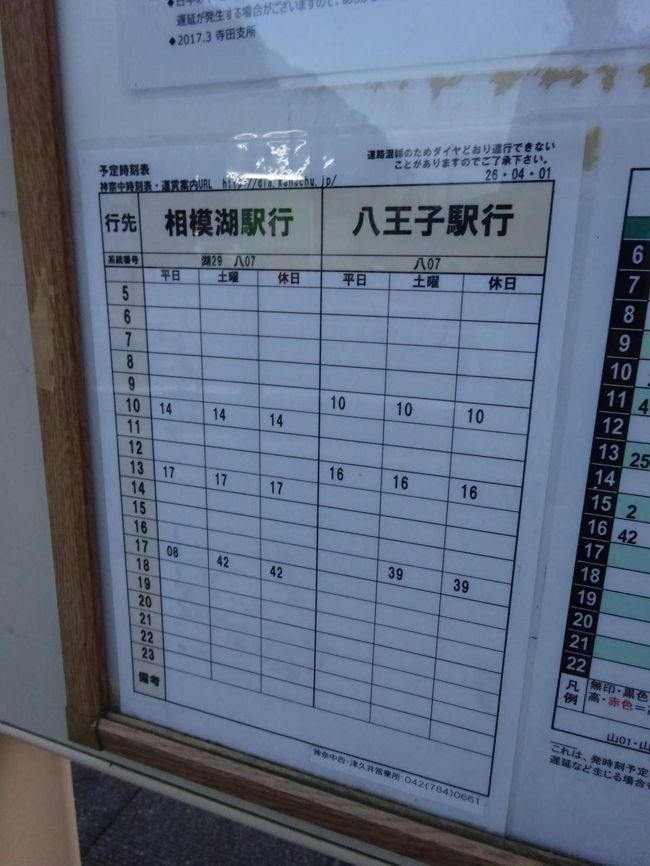 遅延が発生する場合がございますので、
◆2017.3 寺田支所
予定時刻表
神奈中時刻表・運賃案内URL http://dia.kanachu.jp/
道路混雑のためダイヤどおり運行できない
ことがありますのでご了承下さい。
26・04・01
行先 相模湖駅行 八王子駅行
系統番号 湖29 八07 八07
平日 土曜 休日 平日 土曜 休日
5
6
7
8
9
10 14 14 14 10 10 10
11
12
13 17 17 17 16 16 16
14
15
16
17 08 42 42 39 39
18
19
20
21
22
23
備考
神奈中西・津久井営業所 042(784)0661
6
7
8
9
10
11 4
12
13 25
14
15 2
16 42
17
18
19
20
21
22
凡例
無印・黒色
高・赤色=
山01・山
これは、発時刻予定
遅延など生じる場合